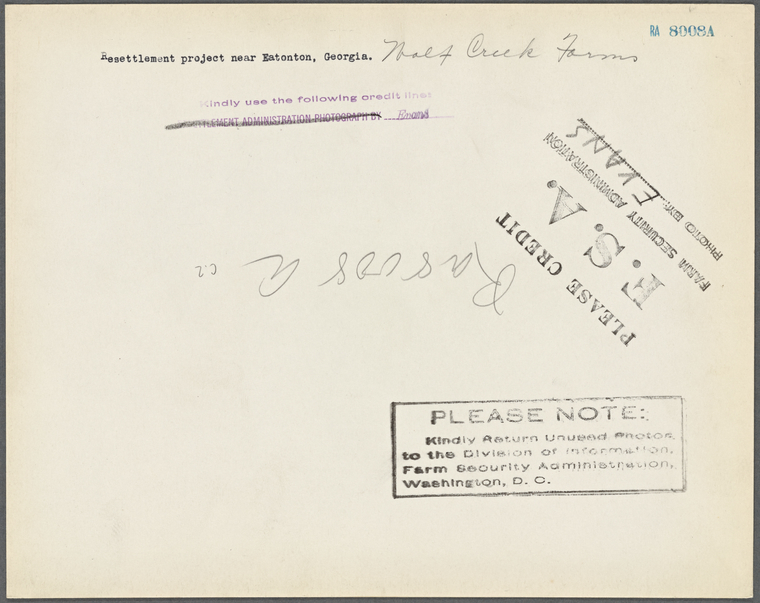 RA 8008A
Resettlement project near Eatonton, Georgia. Wolf Creek Farms
Kindly use the following credit line:
RESETTLEMENT ADMINISTRATION PHOTOGRAPH BY Evans
PLEASE CREDIT
F. S. A.
FARM SECURITY ADMINISTRATION
PHOTO BY: EVANS
Ra 8008 A
C.2
PLEASE NOTE:
Kindly Return Unused Photos
to the Division of Information,
Farm Security Administration,
Washington, D. C.